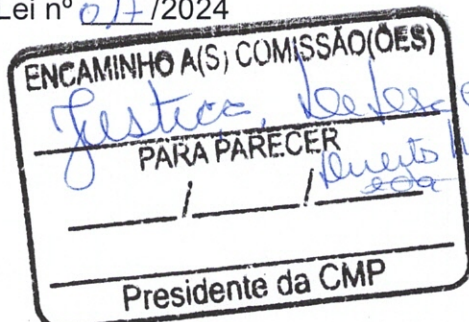 Lei nº 017/2024
ENCAMINHO A(S) COMISSÃO(ÕES)
Justiça,
PARA PARECER
/ /
Presidente da CMP